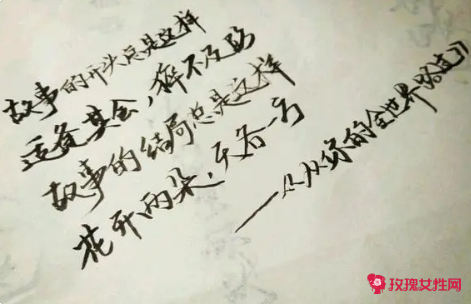 故事的开头总是这样
适逢其会，猝不及防
故事的结局总是这样
花开两朵，天各一方
——《从你的全世界路过》
玫瑰女性网